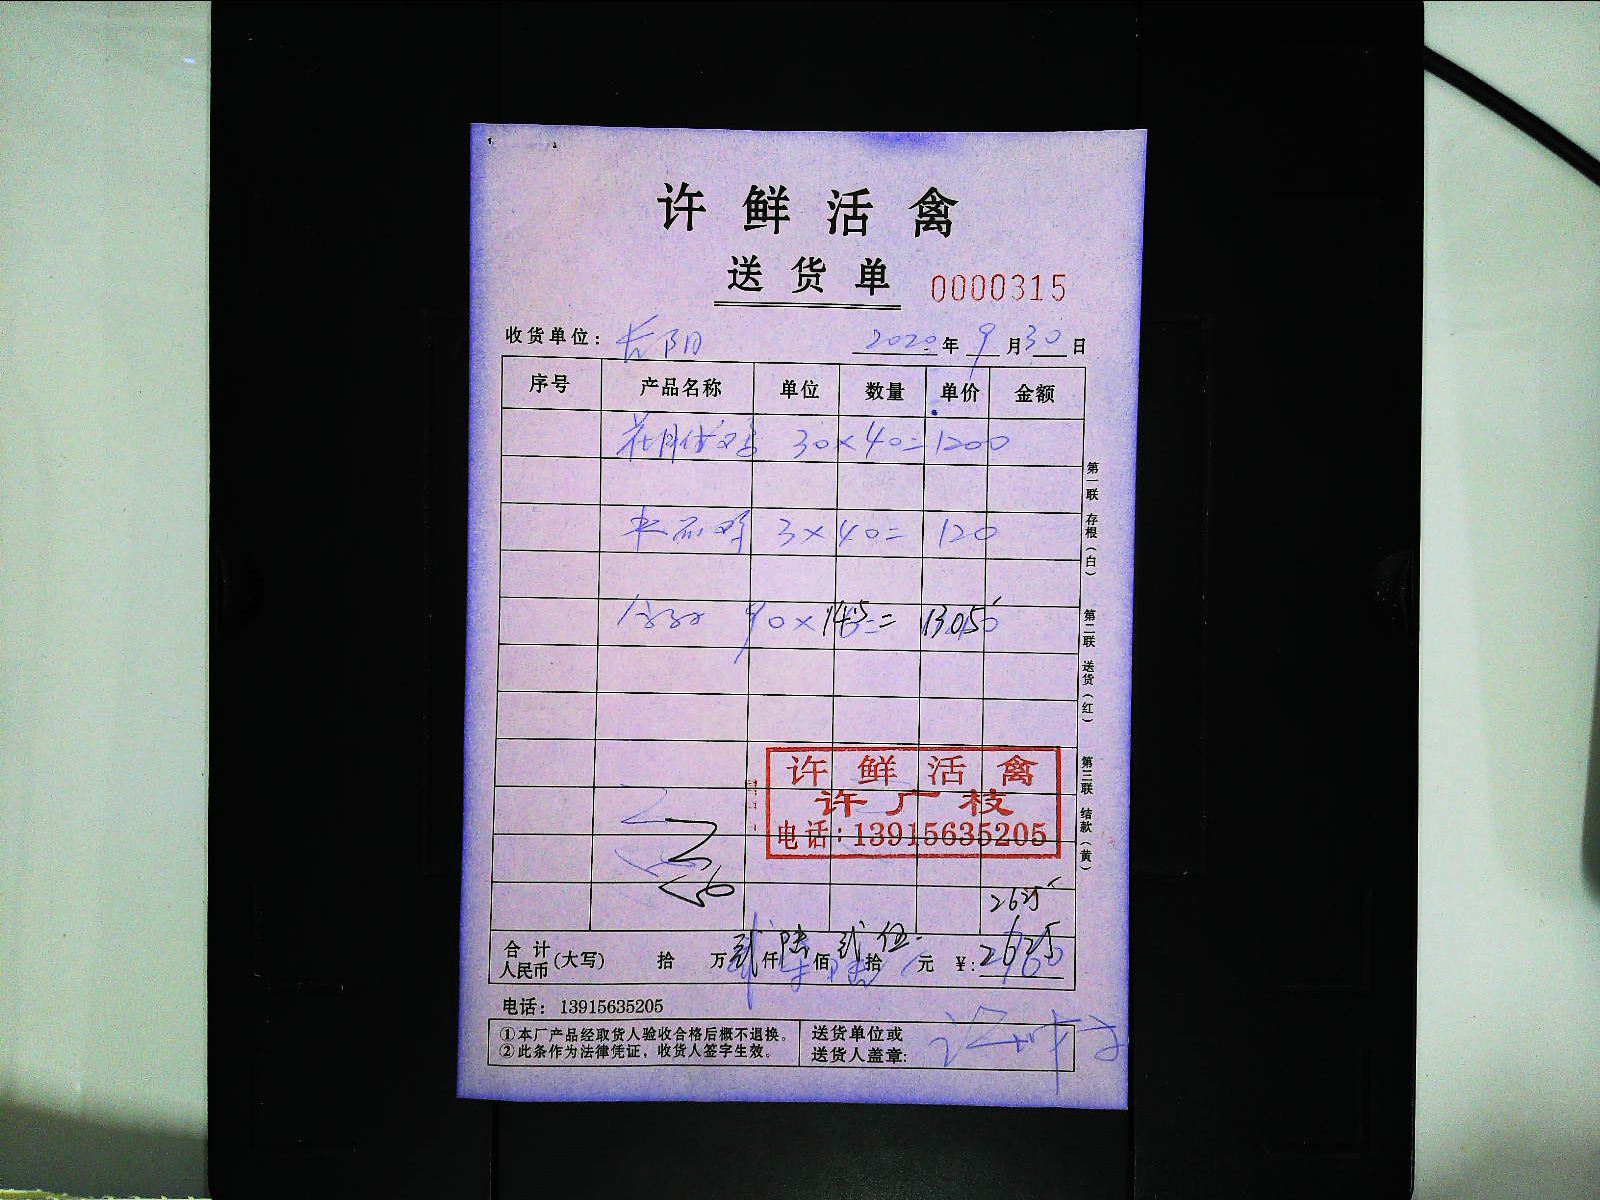 许鲜活禽
送货单 0000315
收货单位: 长阳 2020年 9月30日
序号 产品名称 单位 数量 单价 金额
30×40=1200
3×40= 120
90×14.5= 1305
第一联 存根(白)
第二联 送货(红)
第三联 结款(黄)
许鲜活禽
许广枝
电话:13915635205
2625
合计人民币(大写) 拾 万 贰仟 陆佰 贰拾 伍元 ¥: 2625
电话: 13915635205
①本厂产品经取货人验收合格后概不退换。
②此条作为法律凭证,收货人签字生效。
送货单位或
送货人盖章: